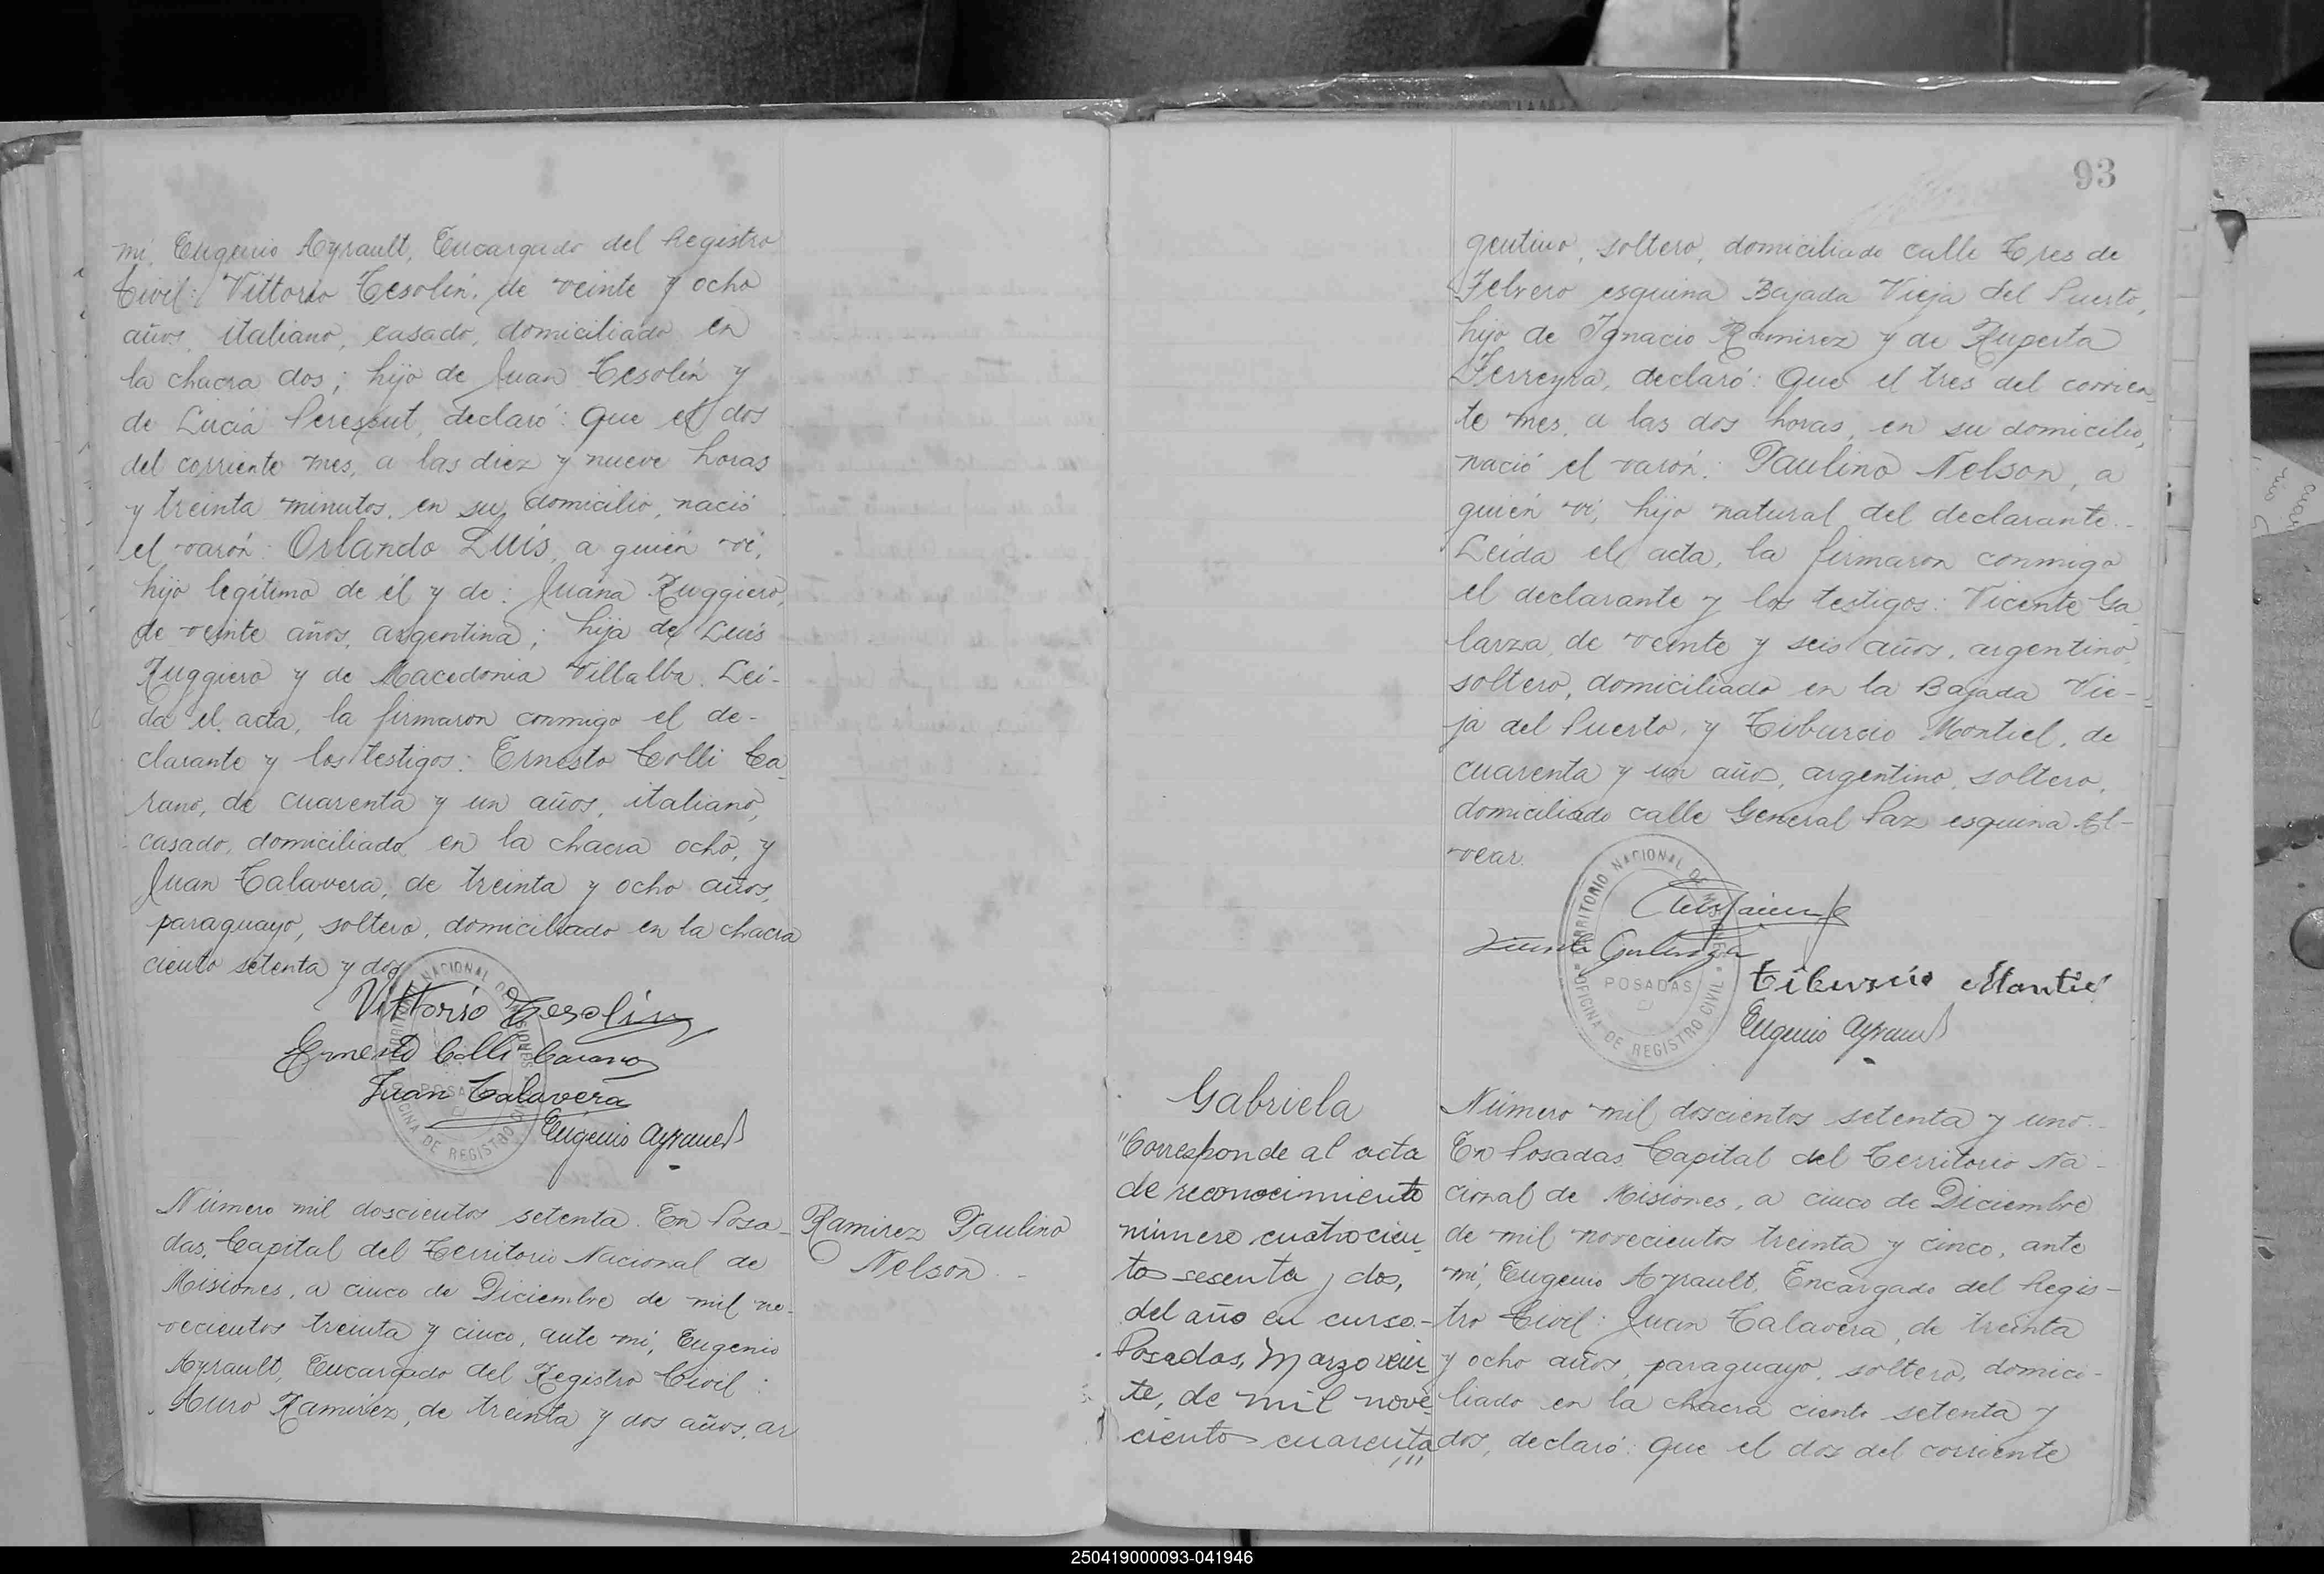 mi, Eugenio Ayrault, Encargado del Registro
Civil: Vittorio Tesolin, de veinte y ocho
años, italiano, casado, domiciliado en
la chacra dos; hijo de Juan Tesolin y
de Lucia Peressut, declaró: Que el dos
del corriente mes, a las diez y nueve horas
y treinta minutos, en su domicilio, nació
el varón: Orlando Luis, a quién vi,
hijo legítimo de él y de: Juana Ruggiero,
de veinte años, argentina; hija de Luis
Ruggiero y de Macedonia Villalba. Lei-
da el acta, la firmaron conmigo el de-
clarante y los testigos: Ernesto Colli Ca
rano, de cuarenta y un años, italiano,
casado, domiciliado en la chacra ocho, y
Juan Talavera, de treinta y ocho años,
paraguayo, soltero, domiciliado en la chacra
ciento setenta y dos
Vittorio Tesolin
Ernesto Colli Carano
Juan Talavera
Eugenio Ayrault
TERRITORIO NACIONAL DE MISIONES
POSADAS
OFICINA DE REGISTRO CIVIL
Número mil doscientos setenta. En Posa-
das, Capital del Territorio Nacional de
Misiones, a cinco de Diciembre de mil no-
vecientos treinta y cinco, ante mi, Eugenio
Ayrault, Encargado del Registro Civil:
Auro Ramirez, de treinta y dos años, ar
Ramirez Paulino
Nelson.-
93
gentino, soltero, domiciliado calle Tres de
Febrero esquina Bajada Vieja del Puerto,
hijo de Ignacio Ramirez y de Ruperta
Ferreyra, declaró: Que el tres del corrien
te mes, a las dos horas, en su domicilio,
nació el varón: Paulino Nelson, a
quién vi, hijo natural del declarante.-
Leida el acta, la firmaron conmigo
el declarante y los testigos: Vicente Ga
larza, de veinte y seis años, argentino,
soltero, domiciliado en la Bajada Vie-
ja del Puerto, y Tiburcio Montiel, de
cuarenta y un años, argentino, soltero,
domiciliado calle General Paz esquina Al-
vear.
TERRITORIO NACIONAL DE MISIONES
POSADAS
OFICINA DE REGISTRO CIVIL
Vicente Galarza
Tiburcio Montiel
Eugenio Ayrault
Gabriela
"Corresponde al acta
de reconocimiento
número cuatrocien-
tos sesenta y dos,
del año en curso.-
Posadas, Marzo vein-
te, de mil nove
ciento cuarenta
"
Número mil doscientos setenta y uno.-
En Posadas, Capital del Territorio Na-
cional de Misiones, a cinco de Diciembre
de mil novecientos treinta y cinco, ante
mi, Eugenio Ayrault, Encargado del Regis-
tro Civil: Juan Talavera, de treinta
y ocho años, paraguayo, soltero, domici-
liado en la chacra ciento setenta y
dos, declaró: Que el dos del corriente
250419000093-041946